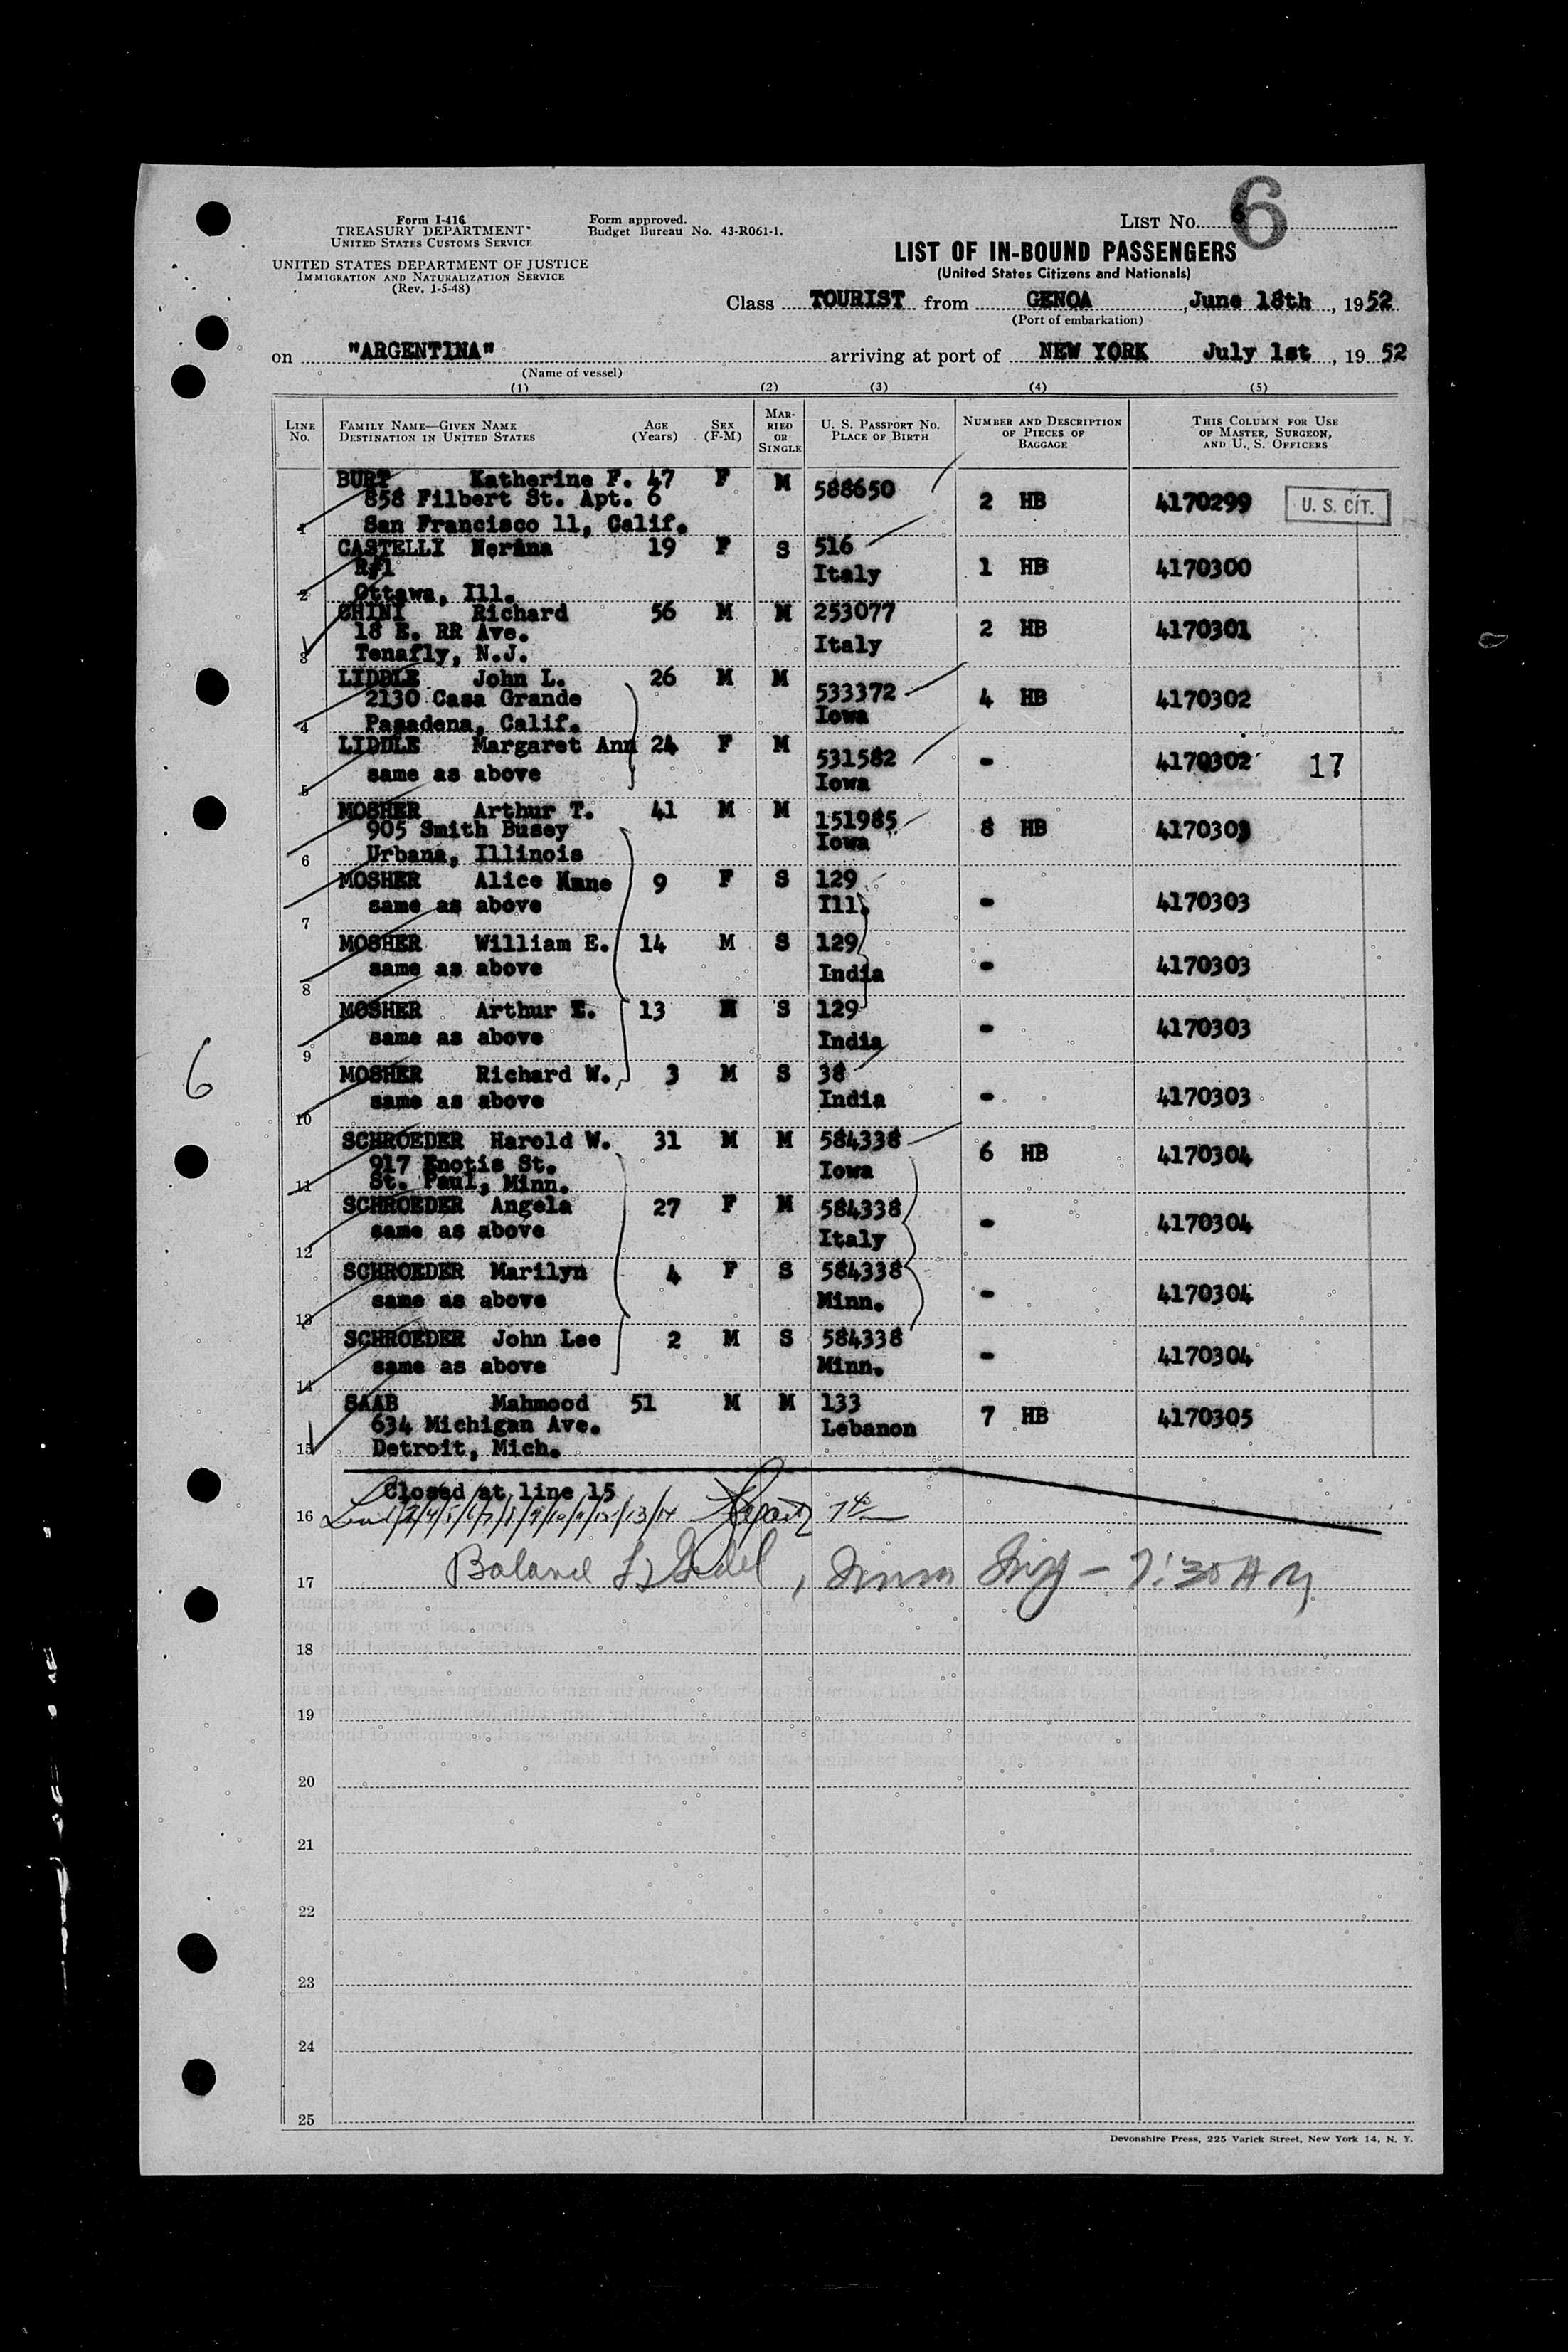 Form I-416
TREASURY DEPARTMENT
UNITED STATES CUSTOMS SERVICE
UNITED STATES DEPARTMENT OF JUSTICE
IMMIGRATION AND NATURALIZATION SERVICE
(Rev. 1-5-48)
Form approved.
Budget Bureau No. 43-R061-1.
LIST No. 6
6
LIST OF IN-BOUND PASSENGERS
(United States Citizens and Nationals)
Class TOURIST from GENOA, June 18th, 1952
(Port of embarkation)
on "ARGENTINA" arriving at port of NEW YORK July 1st, 1952
(Name of vessel)
(1) (2) (3) (4) (5)
LINE No. FAMILY NAME—GIVEN NAME DESTINATION IN UNITED STATES AGE (Years) SEX (F-M) MARRIED OR SINGLE U. S. PASSPORT No. PLACE OF BIRTH NUMBER AND DESCRIPTION OF PIECES OF BAGGAGE THIS COLUMN FOR USE OF MASTER, SURGEON, AND U. S. OFFICERS
BURT Katherine F. 47 F M 588650
858 Filbert St. Apt. 6 2 HB 4170299 U. S. CIT.
1 San Francisco 11, Calif.
CASTELLI Nerina 19 F S 516
R#1 Italy 1 HB 4170300
2 Ottawa, Ill.
CHINI Richard 56 M M 253077
18 E. RR Ave. 2 HB 4170301
3 Tenafly, N.J. Italy
LIDDLE John L. 26 M M 533372
2130 Casa Grande 4 HB 4170302
4 Pasadena, Calif. Iowa
LIDDLE Margaret Ann 24 F M 531582
same as above - 4170302 17
5 Iowa
MOSHER Arthur T. 41 M M 151985
905 Smith Busey 8 HB 4170303
6 Urbana, Illinois Iowa
MOSHER Alice Kane 9 F S 129
same as above Ill. - 4170303
7
MOSHER William E. 14 M S 129
same as above India - 4170303
8
MOSHER Arthur E. 13 M S 129
same as above India - 4170303
9
MOSHER Richard W. 3 M S 38
same as above India - 4170303
10
SCHROEDER Harold W. 31 M M 584338
917 St. 6 HB 4170304
11 St. Paul, Minn. Iowa
SCHROEDER Angela 27 F M 584338
same as above Italy - 4170304
12
SCHROEDER Marilyn 4 F S 584338
same as above Minn. - 4170304
13
SCHROEDER John Lee 2 M S 584338
same as above Minn. - 4170304
14
SAAB Mahmood 51 M M 133
634 Michigan Ave. Lebanon 7 HB 4170305
15 Detroit, Mich.
Closed at line 15
16
17 Balance 7:30 AM
6
18
19
20
21
22
23
24
25
Devonshire Press, 225 Varick Street, New York 14, N. Y.